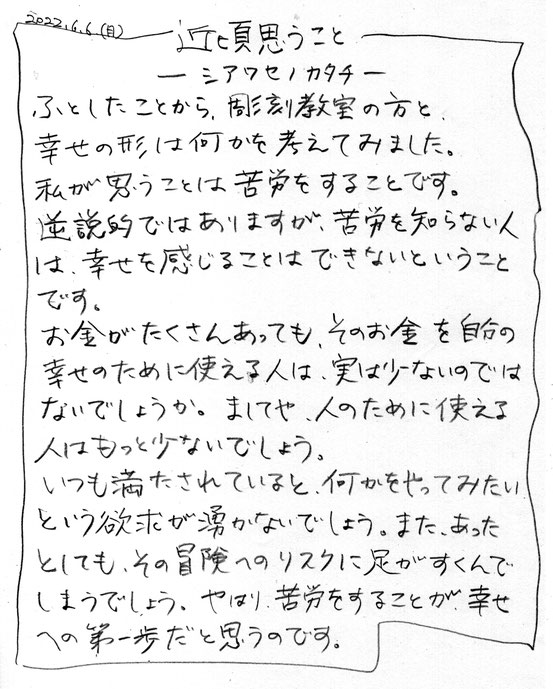 2022.6.6(月)
近頃思うこと
ーシアワセノカタチー
ふとしたことから、彫刻教室の方と、
幸せの形は何かを考えてみました。
私が思うことは苦労をすることです。
逆説的ではありますが、苦労を知らない人
は、幸せを感じることはできないということ
です。
お金がたくさんあっても、そのお金を自分の
幸せのために使える人は、実は少ないのでは
ないでしょうか。ましてや、人のために使える
人はもっと少ないでしょう。
いつも満たされていると、何かをやってみたい
という欲求が湧かないでしょう。また、あった
としても、その冒険へのリスクに足がすくんで
しまうでしょう。やはり、苦労をすることが、幸せ
への第一歩だと思うのです。